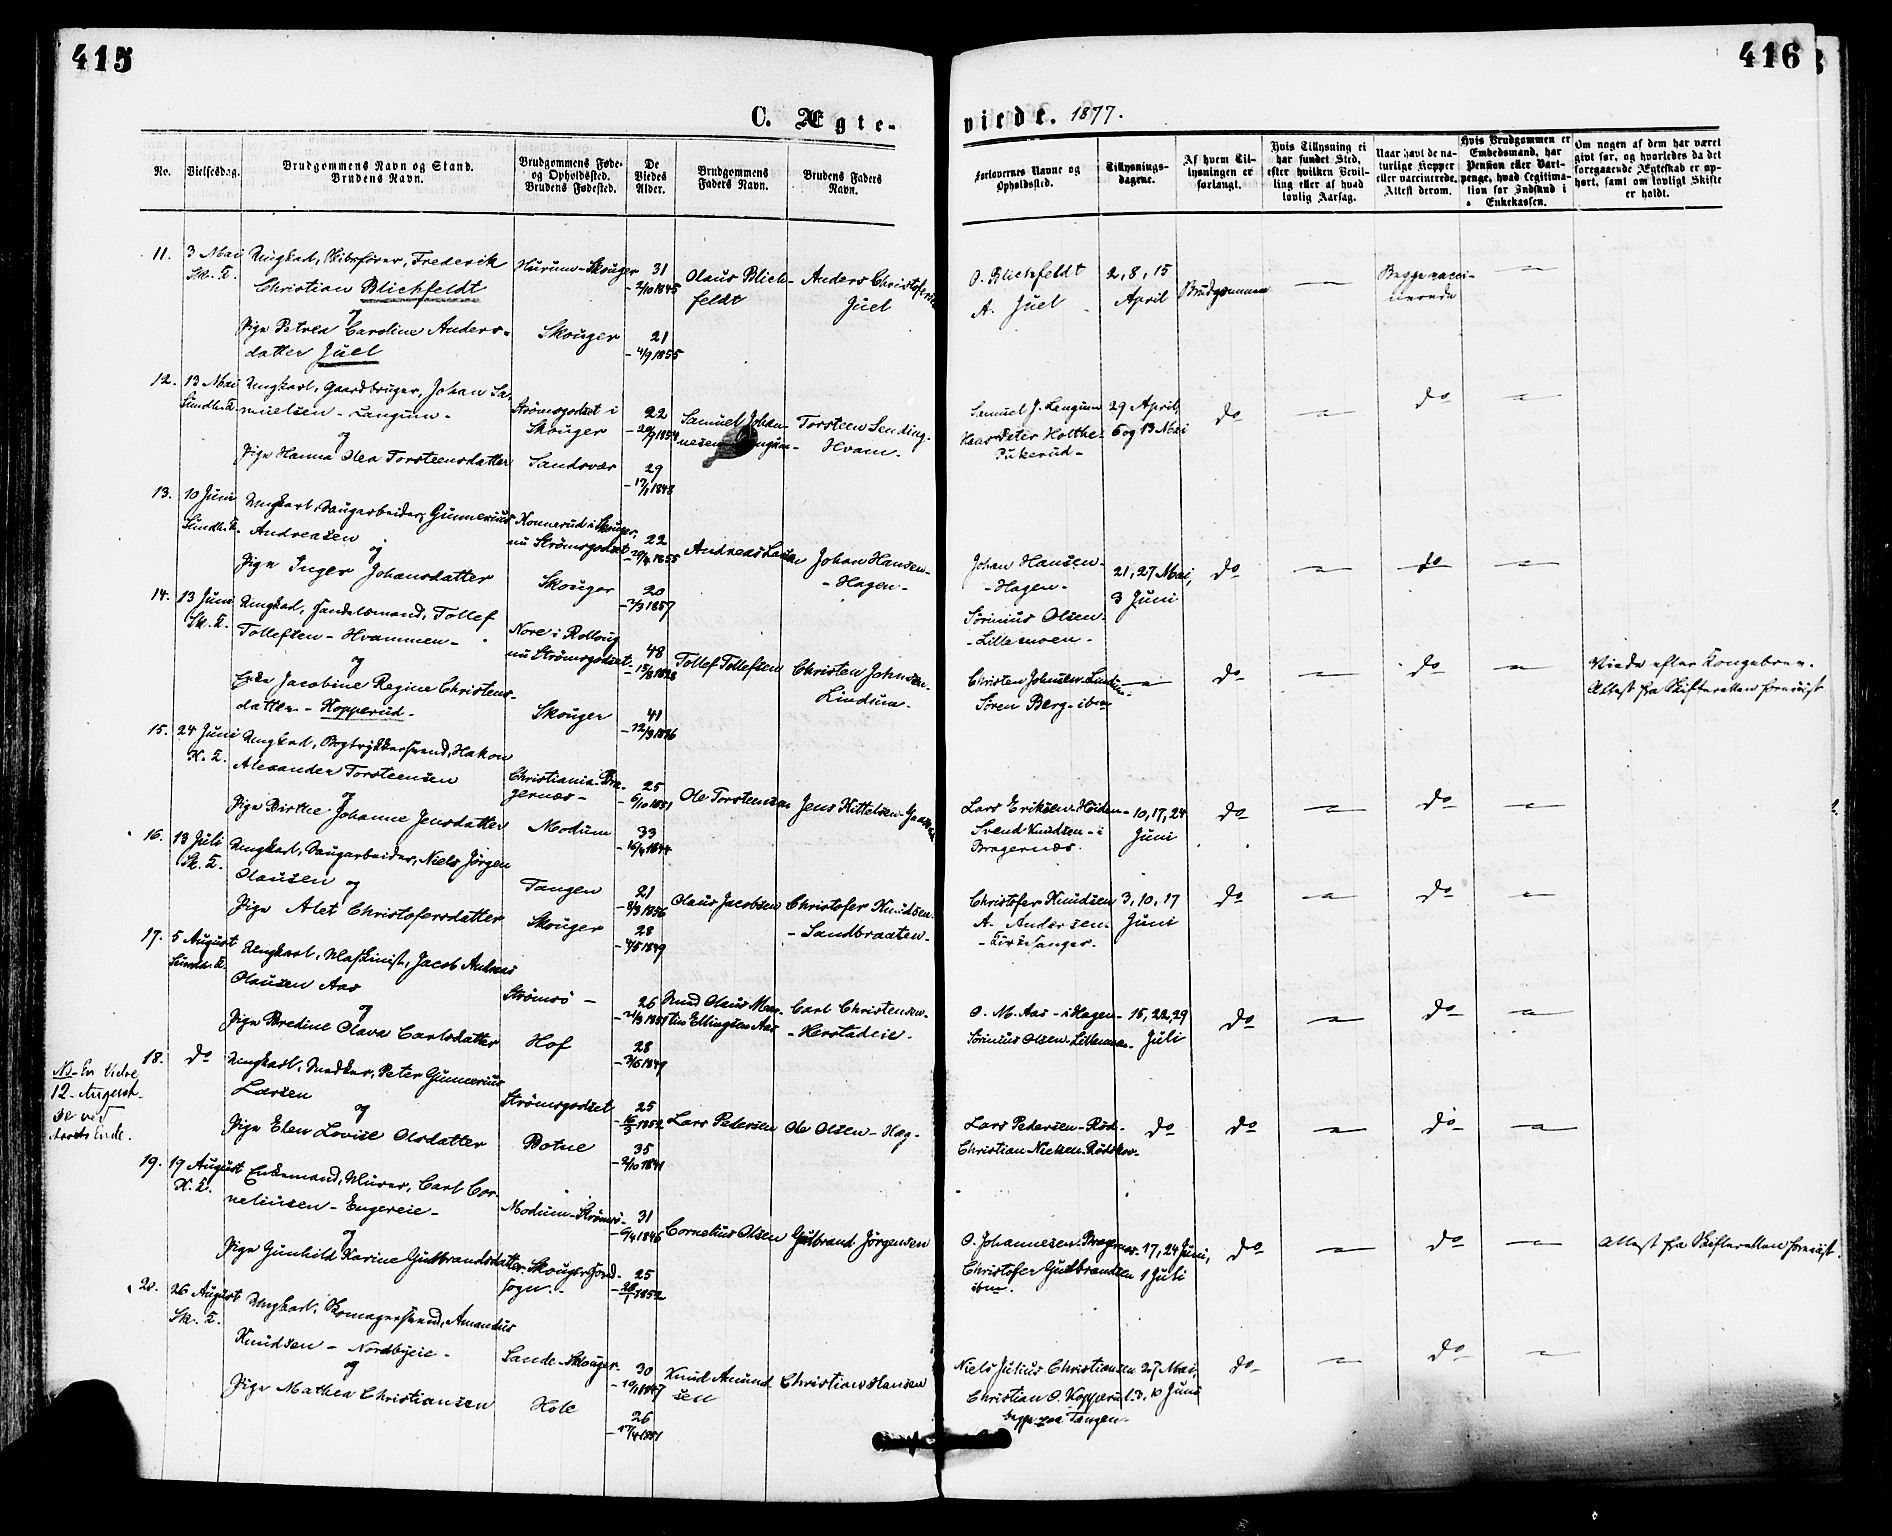 415
416
C. Ægte-
viede. 1877.
No.
Vielsesdag.
Brudgommens Navn og Stand.
Brudens Navn.
Brudgommens Føde-
og Opholdssted.
Brudens Fødested.
De
Viedes
Alder.
Brudgommens
Faders Navn.
Brudens Faders
Navn.
Forlovernes Navne og
Opholdssted.
Tillysnings-
dagene.
Af hvem Til-
lysningen er
forlangt.
Hvis Tillysning ei
har fundet Sted,
efter hvilken Bevil-
ling eller af hvad
lovlig Aarsag.
Naar havt de na-
turlige Kopper
eller vaccinerede.
Attest derom.
Hvis Brudgommen er
Embedsmand, har
Pension eller Vart-
penge, hvad Legitima-
tion for Indskud i
Enkekassen.
Om nogen af dem har været
givt før, og hvorledes da det
foregaaende Ægteskab er op-
hørt, samt om lovligt Skifte
er holdt.
11. 3 Mai Ungkarl, Skibsfører, Frederik Hurum-Skouger 31 Olaus Blich- Anders Christofersen
Sk. K. Christian Blichfeldt - 2/10 1845 feldt Juel
og
Pige Petrea Caroline Anders- Skouger 21
datter Juel - 4/9 1855
O. Blichfeldt 2, 8, 15 Brudgommen — Begge vacci- —
A. Juel April nerede
12. 13 Mai Ungkarl, Gaardbruger, Johan Sa- Strømsgodset i 22 Samuel Johan- Torsteen Sending-
Sundh. K. muelsen - Langum - Skouger - 20/9 1854 nesen Langum- Hvam-
og
Pige Hanna Olea Torsteensdatter Sandsvær 29
- 17/1 1848
Samuel J. Langum 29 April, do — do —
Hans Peter Holthe- 6 og 13 Mai
Pukerud-
13. 10 Juni Ungkarl, Saugarbeider, Gunnerius Konnerud i Skouger,
Sundh. K. Andreasen nu Strømsgodset 22 Andreas Larsen Johan Hansen-
og - 20/4 1855 - Hagen-
Pige Inger Johansdatter Skouger 20
- 7/3 1857
Johan Hansen- 21, 27 Mai, do — do —
- Hagen- 3 Juni
Sørinius Olsen-
- Lillemoen-
14. 13 Juni Ungkarl, Handelsmand, Tollef Nore i Rolloug
Sk. K. Tollefsen - Hvammen - nu Strømsgodset 48 Tollef Tollefsen Christen Johnsen-
og - 15/8 1828 Lindum-
Enke Jacobine Regine Christens- Skouger 41
datter - Kopperud - - 12/3 1836
Christen Johnsen-Lindum- — do — do — Viede efter Kongebrev.
Søren Berg - ibm Attest fra Skifteretten forevist
15. 24 Juni Ungkarl, Bogtrykkersvend, Hakon Christiania-Bra-
K. K. Alexander Torsteensen gernæs - 25 Ole Torsteensen Jens Kittelsen-
og - 6/10 1851
Pige Birthe Johanne Jensdatter Modum 33
- 16/4 1844
Lars Eriksen-Heiden- 10, 17, 24 do — do —
Svend Knudsen - i Juni
Bragernæs.
16. 18 Juli Ungkarl, Saugarbeider, Niels Jørgen Tangen 21 Olaus Jacobsen Christofer Knudsen-
Sk. K. Olausen - 8/3 1856 - Sandbraaten-
og
Pige Alet Christofersdatter Skouger 28
- 4/5 1849
Christofer Knudsen 3, 10, 17 do — do —
A. Andersen- Juni
- Kirkesanger.
17. 5 August Ungkarl, Maskinist, Jacob Andreas Strømsø - 26 Knud Olaus Mar- Carl Christensen-
Sundh. K. Olausen Aas - 21/3 1851 tin Ellingsen Aas - Herstadeie-
og
Pige Bredine Olava Carlsdatter Hof 28
- 2/6 1849
O. M. Aas - i Hagen- 15, 22, 29 do — do —
Sørinius Olsen-Lillemoen- Juli
18. do Ungkarl, Snedker, Peter Gunnerius Strømsgodset 25 Lars Pedersen Ole Olsen - Hag-
Larsen - 16/3 1852
og
Pige Elen Lovise Olsdatter Botne 35
- 2/10 1841
NB - En Vielse
12. August
se ved
Aarets Ende.
Lars Pedersen-Rød- do do — do —
Christian Nielsen-Rødskov.
19. 19 August Enkemand, Murer, Carl Cor- Modum-Strømsø- 31 Cornelius Olsen Gulbrand Jørgensen
K. K. neliusen - Engereie - - 6/4 1846
og
Pige Gunhild Karine Gulbrandsdatter Skouger Hoved- 25
sogn.- - 26/1 1852
O. Johannesen-Bragernæs- 17, 24 Juni, do — do — Attest fra Skifteretten forevist.
Christofer Gulbrandsen 1 Juli
ibm.
20. 26 August Ungkarl, Skomagersvend, Amandus Sande-Skouger- 30 Knud Amund- Christian Hansen
Sk. K. Knudsen - Nordbyeie - - 19/1 1847 sen
og
Pige Mathea Christiansen Hole 26
- 17/4 1851
Niels Julius Christiansen 27 Mai, do — do —
Christian O. Kopperud. 3, 10 Juni
begge paa Tangen-